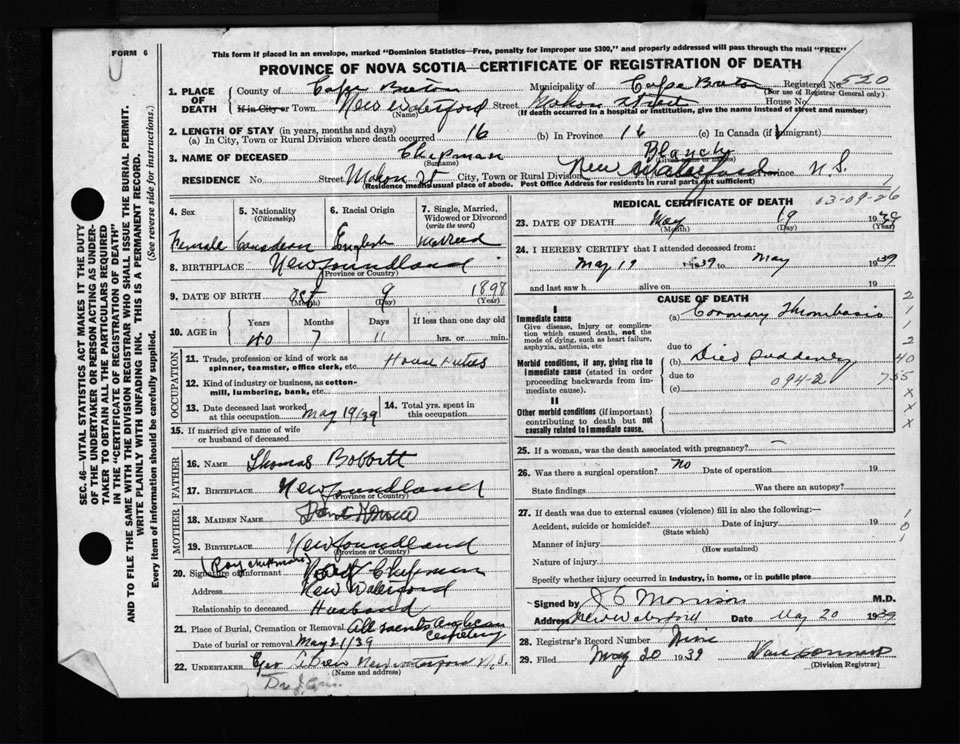 FORM 6
This form if placed in an envelope, marked "Dominion Statistics—Free, penalty for improper use $300," and properly addressed will pass through the mail "FREE"
PROVINCE OF NOVA SCOTIA—CERTIFICATE OF REGISTRATION OF DEATH
1. PLACE OF DEATH County of Cape Breton Municipality of Cape Breton Registered No. 520
(For use of Registrar General only)
If in City or Town New Waterford Street Mahon Street House No.
(Name) (If death occurred in a hospital or institution, give the name instead of street and number)
2. LENGTH OF STAY (in years, months and days)
(a) In City, Town or Rural Division where death occurred 16 (b) In Province 16 (c) In Canada (if immigrant)
3. NAME OF DECEASED Chapman Blanch
(Surname) (Given name or names)
RESIDENCE No. Street Mahon St City, Town or Rural Division New Waterford Province N S.
(Residence means usual place of abode. Post Office Address for residents in rural parts not sufficient)
4. Sex 5. Nationality (Citizenship) 6. Racial Origin 7. Single, Married, Widowed or Divorced (write the word)
Female Canadean English Married
8. BIRTHPLACE Newfoundland
(Province or Country)
9. DATE OF BIRTH Oct 9 1898
(Month) (Day) (Year)
10. AGE in Years Months Days If less than one day old
40 7 11 hrs. or min.
OCCUPATION
11. Trade, profession or kind of work as spinner, teamster, office clerk, etc. House Duties
12. Kind of industry or business, as cotton-mill, lumbering, bank, etc.
13. Date deceased last worked at this occupation May 19/39 14. Total yrs. spent in this occupation
15. If married give name of wife or husband of deceased
FATHER
16. NAME Thomas Bobbett
17. BIRTHPLACE Newfoundland
(Province or Country)
MOTHER
18. MAIDEN NAME
19. BIRTHPLACE Newfoundland
(Province or Country)
(Roy Chapman)
20. Signature of Informant Chapman
Address New Waterford
Relationship to deceased Husband
21. Place of Burial, Cremation or Removal All Saints Anglican Cemetery
Date of burial or removal May 21/39
22. UNDERTAKER Geo LeBrew New Waterford N.S.
(Name and address)
MEDICAL CERTIFICATE OF DEATH 03-09-26
23. DATE OF DEATH May 19 1939
(Month) (Day) (Year)
24. I HEREBY CERTIFY that I attended deceased from:
May 19 1939 to May 1939
and last saw h alive on 19
CAUSE OF DEATH
I
Immediate cause (a) Coronary Thombosis
Give disease, injury or complication which caused death, not the mode of dying, such as heart failure, asphyxia, asthenia, etc
due to
Morbid conditions, if any, giving rise to immediate cause (stated in order proceeding backwards from immediate cause). (b) Died Suddenly
due to 094-2
(c)
II
Other morbid conditions (if important) contributing to death but not causally related to immediate cause.
2
1
1
2
40
755
X
X
X
25. If a woman, was the death associated with pregnancy? —
26. Was there a surgical operation? no Date of operation 19
State findings Was there an autopsy?
27. If death was due to external causes (violence) fill in also the following:
Accident, suicide or homicide? Date of injury 19
(State which)
Manner of injury
(How sustained)
Nature of injury
Specify whether injury occurred in industry, in home, or in public place
1
0
1
Signed by Morrison M.D.
Address New Waterford Date May 20 1939
28. Registrar's Record Number Nine
29. Filed May 20 1939
(Division Registrar)
SEC. 46—VITAL STATISTICS ACT MAKES IT THE DUTY
OF THE UNDERTAKER OR PERSON ACTING AS UNDER-
TAKER TO OBTAIN ALL THE PARTICULARS REQUIRED
IN THE "CERTIFICATE OF REGISTRATION OF DEATH"
AND TO FILE THE SAME WITH THE DIVISION REGISTRAR WHO SHALL ISSUE THE BURIAL PERMIT.
WRITE PLAINLY WITH UNFADING INK. THIS IS A PERMANENT RECORD.
Every item of information should be carefully supplied. (See reverse side for instructions.)